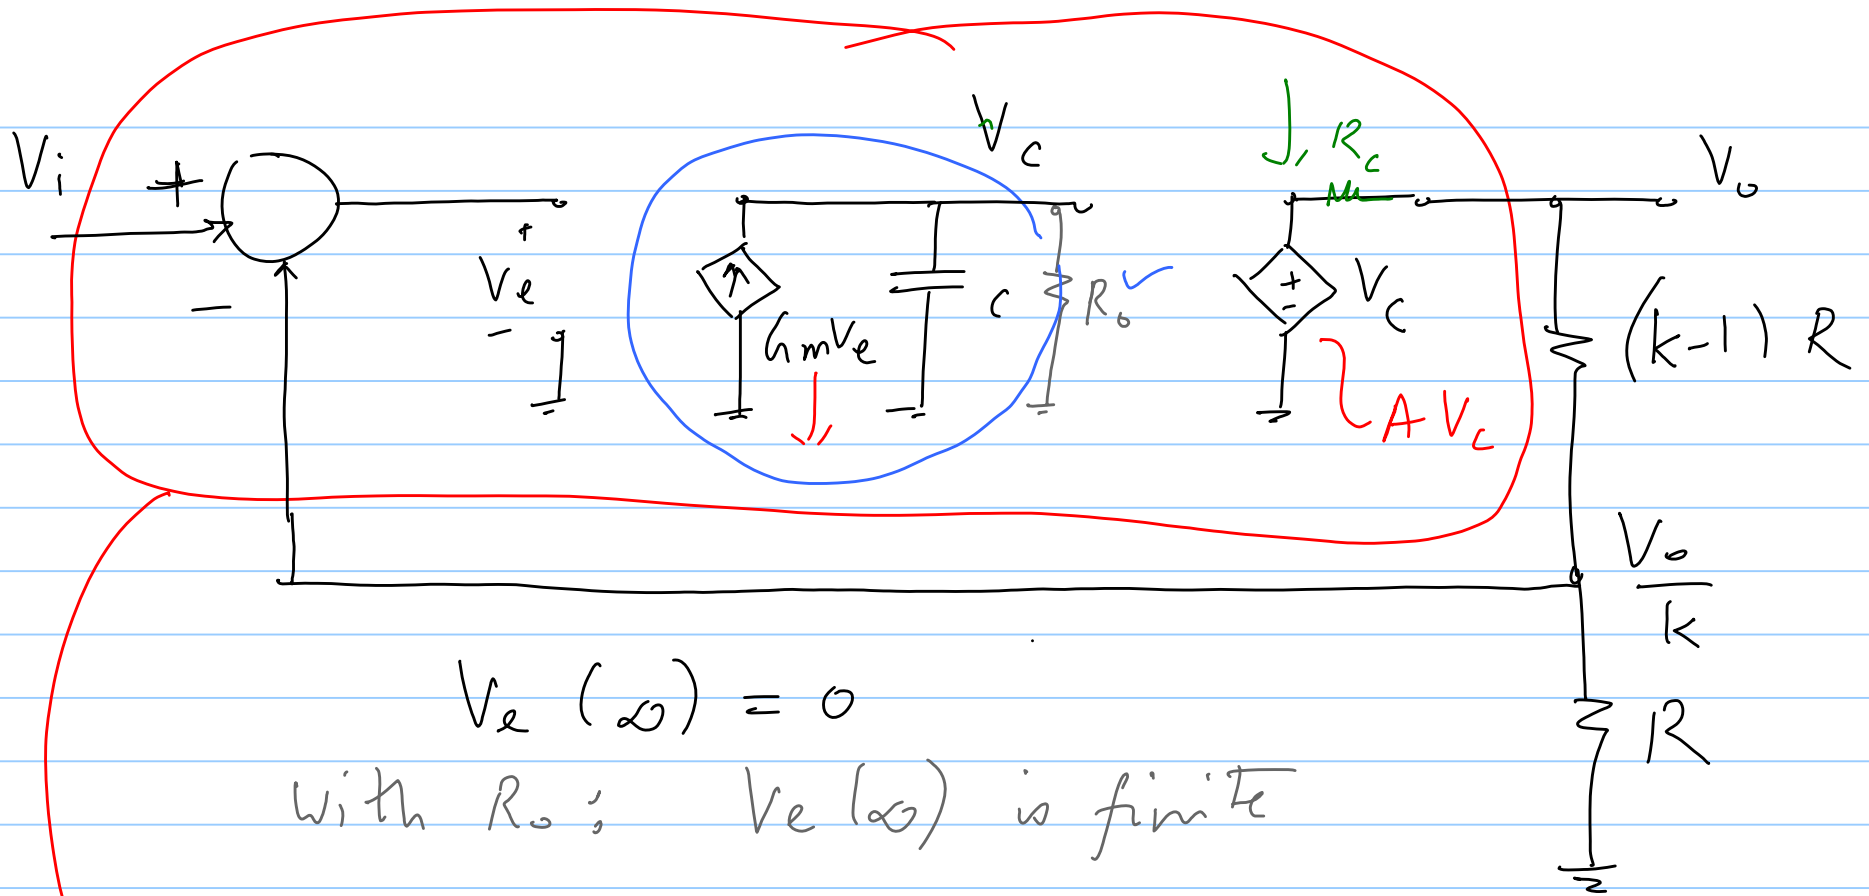 Vi
+
−
+
Ve
−
GmVe
C
Vc
Ro ✓
Rc
+
−
Vc
A Vc
Vo
(k-1) R
Vo/k
R
Ve (∞) = 0
with Ro : Ve(∞) is finite